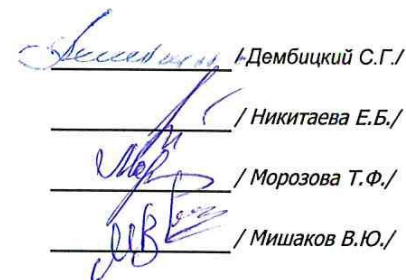 /Дембицкий С.Г./
/ Никитаева Е.Б./
/ Морозова Т.Ф./
/ Мишаков В.Ю./